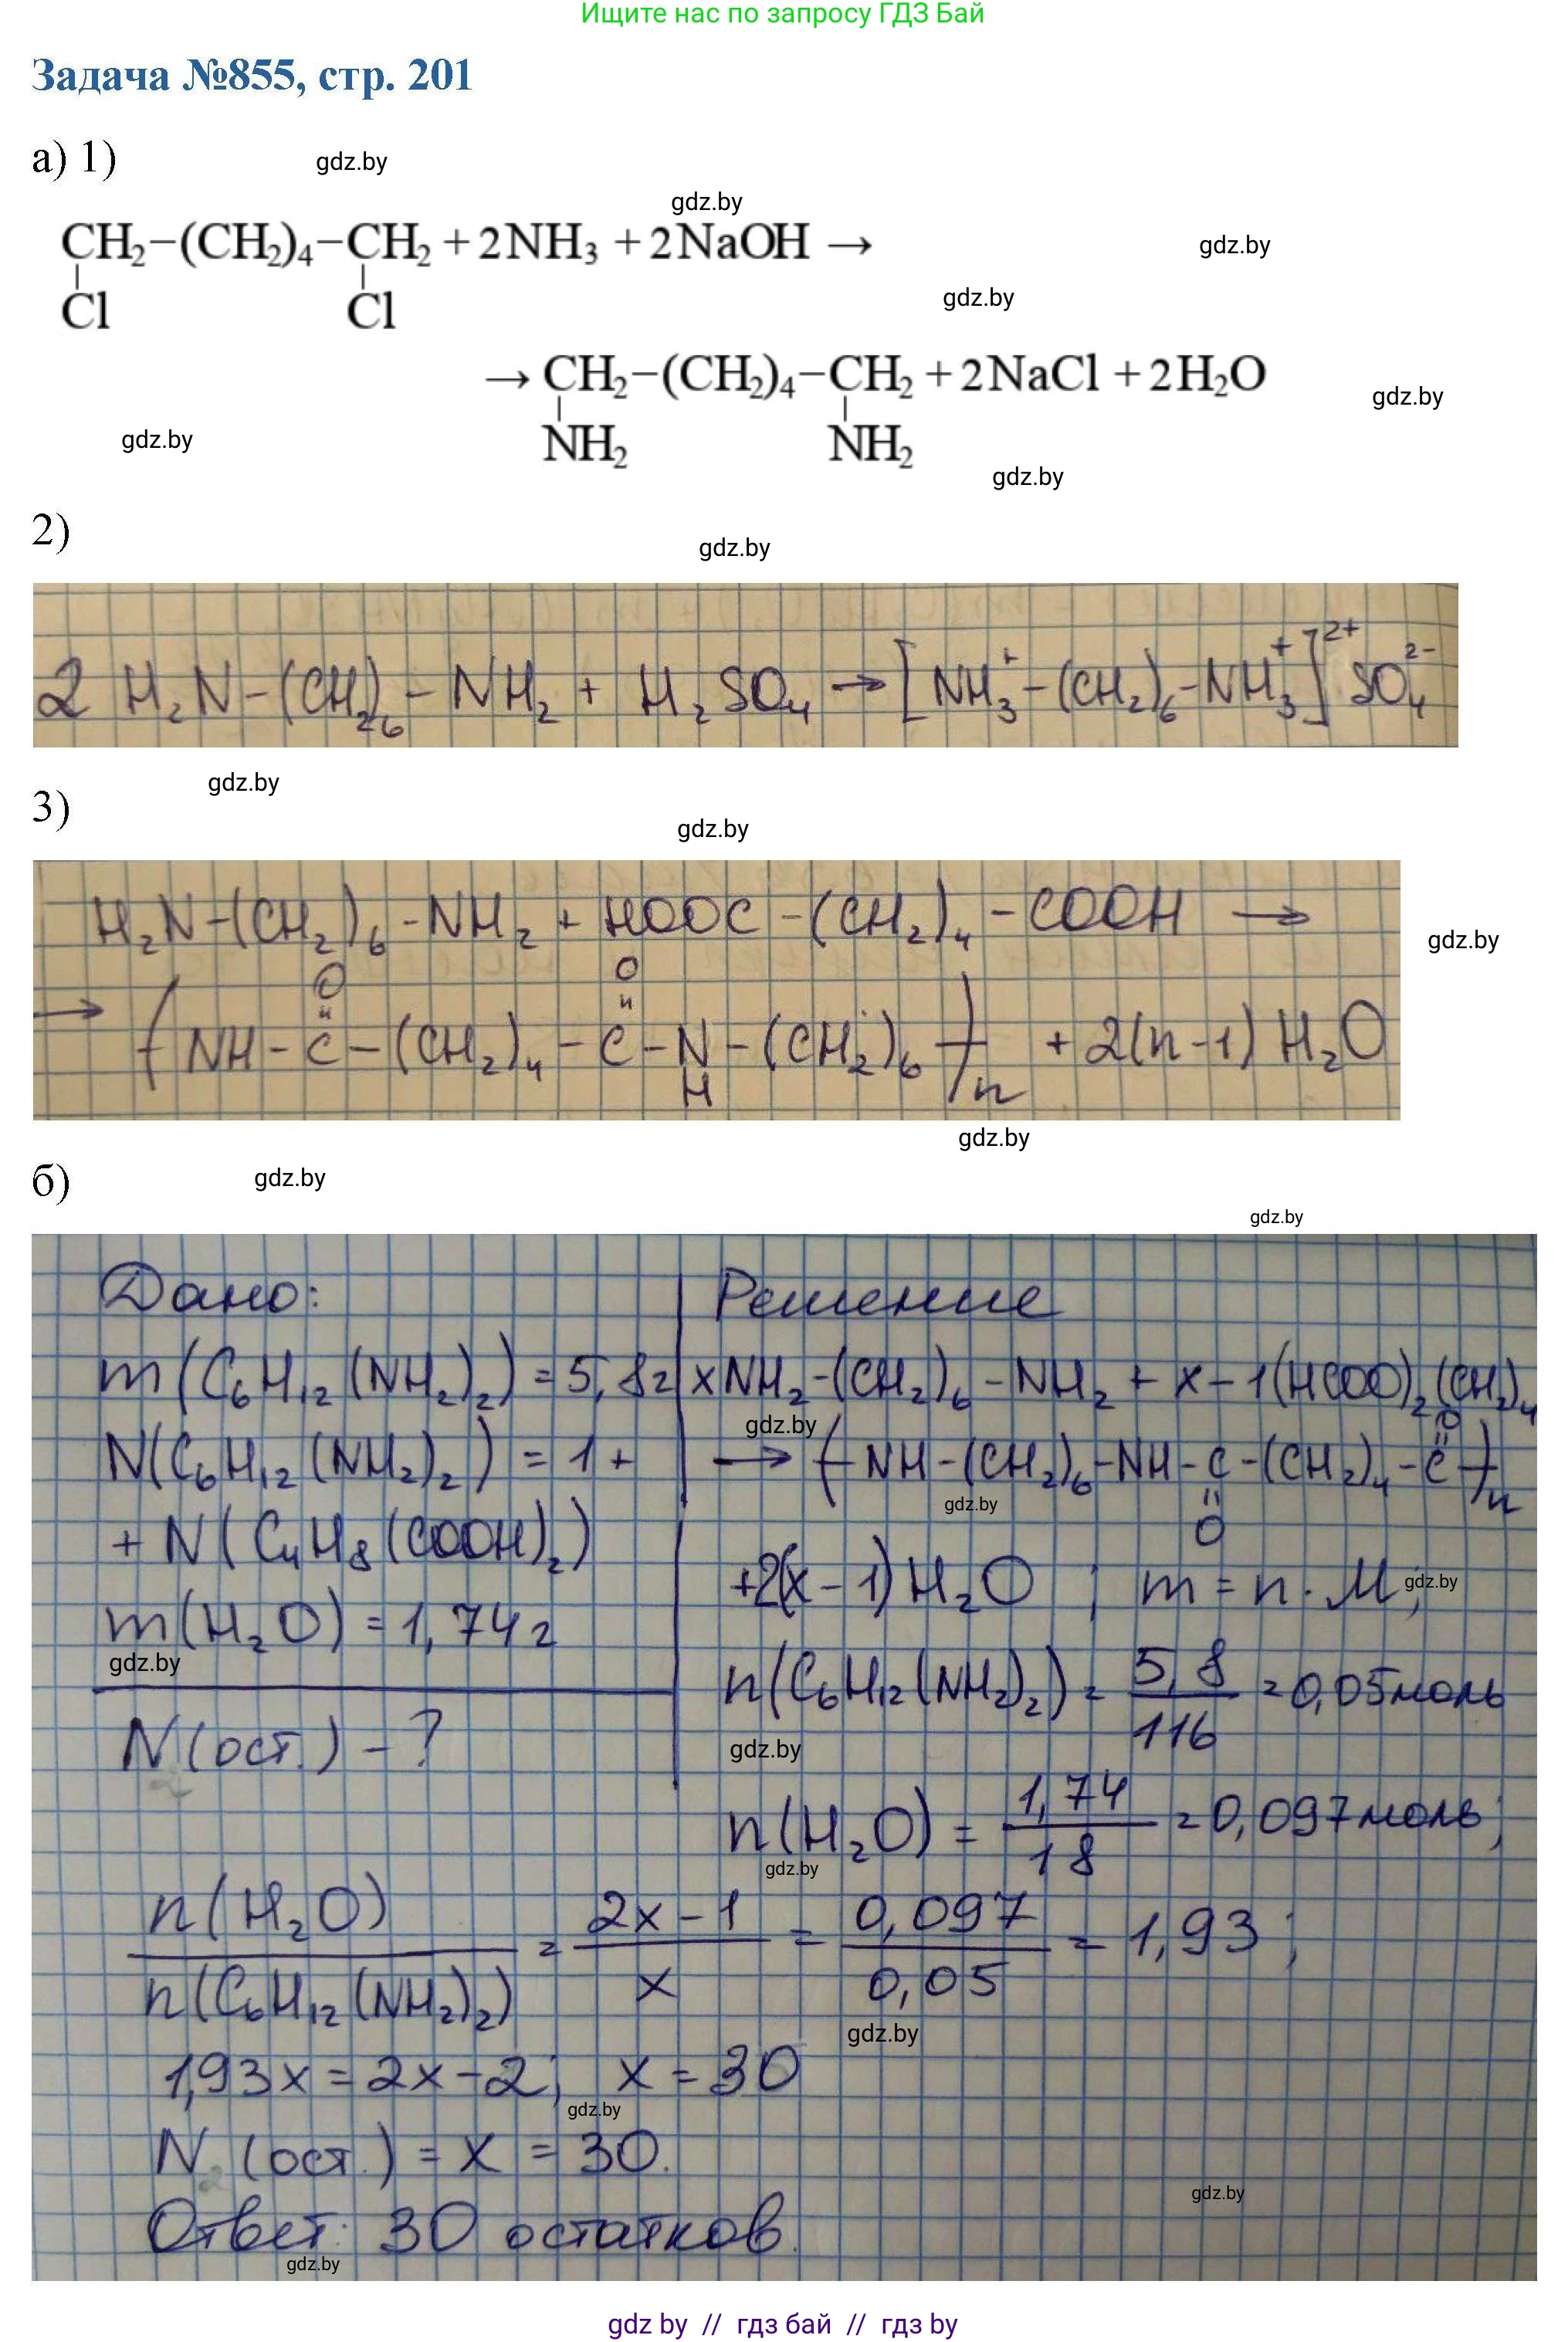 Ищите нас по запросу ГДЗ Бай
Задача №855, стр. 201
а) 1)
gdz.by
gdz.by
CH₂−(CH₂)₄−CH₂ + 2NH₃ + 2NaOH →
gdz.by
Cl Cl
gdz.by
→ CH₂−(CH₂)₄−CH₂ + 2NaCl + 2H₂O
gdz.by
gdz.by
NH₂ NH₂
gdz.by
2)
gdz.by
2 H₂N-(CH₂)₆-NH₂ + H₂SO₄ → [NH₃⁺-(CH₂)₆-NH₃⁺]²⁺ SO₄²⁻
gdz.by
3)
gdz.by
H₂N-(CH₂)₆-NH₂ + HOOC-(CH₂)₄-COOH →
gdz.by
O O
→ (NH-C-(CH₂)₄-C-N-(CH₂)₆)n + 2(n-1) H₂O
H
gdz.by
б)
gdz.by
gdz.by
Дано: Решение
m(C₆H₁₂(NH₂)₂) = 5,8г xNH₂-(CH₂)₆-NH₂ + x-1(HCOO)₂(CH₂)₄
gdz.by
O
N(C₆H₁₂(NH₂)₂) = 1+ → (NH-(CH₂)₆-NH-C-(CH₂)₄-C)n
gdz.by
O
+ N(C₄H₈(COOH)₂)
+2(x-1) H₂O ; m = n · M;
gdz.by
m(H₂O) = 1,74г
gdz.by
n(C₆H₁₂(NH₂)₂) = 5,8/116 = 0,05моль
N(ост.) - ?
gdz.by
n(H₂O) = 1,74/18 = 0,097моль;
gdz.by
n(H₂O)/n(C₆H₁₂(NH₂)₂) = 2x-1/x = 0,097/0,05 = 1,93;
gdz.by
1,93x = 2x-2; x = 30
gdz.by
N (ост.) = x = 30.
gdz.by
Ответ: 30 остатков.
gdz.by
gdz by // гдз бай // гдз by